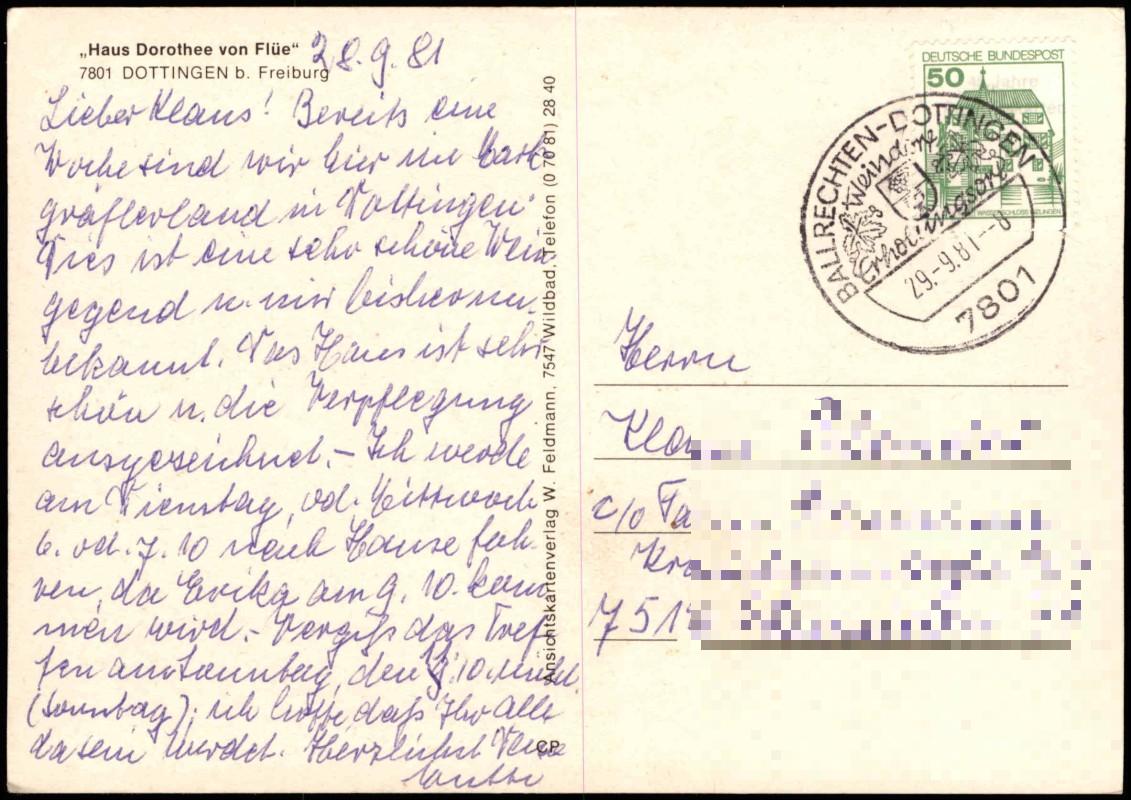 „Haus Dorothee von Flüe“
7801 DOTTINGEN b. Freiburg
28.9.81
Lieber Klaus! Bereits eine
Woche sind wir hier im Mark-
gräflerland in Dottingen.
Dies ist eine sehr schöne Wein
gegend u. mir bisher un-
bekannt. Das Haus ist sehr
schön u. die Verpflegung
ausgezeichnet. – Ich werde
am Dienstag, od. Mittwoch
6. od. 7.10 nach Hause fah-
ren, da Erika am 9. 10. kom
men wird. – Vergiß das Tref-
fen am Sonntag, den 10. nicht
(Sonntag); ich hoffe daß Ihr alle
da sein werdet. Herzlichst Deine
Mutti
Ansichtskartenverlag W. Feldmann, 7547 Wildbad, Telefon (0 70 81) 28 40
CP
DEUTSCHE BUNDESPOST
50
WASSERSCHLOSS INZLINGEN
BALLRECHTEN-DOTTINGEN
Weindorf
Erholungsort
29.-9.81--8
7801
Herrn
Kla
c/o Fa
Kra
751